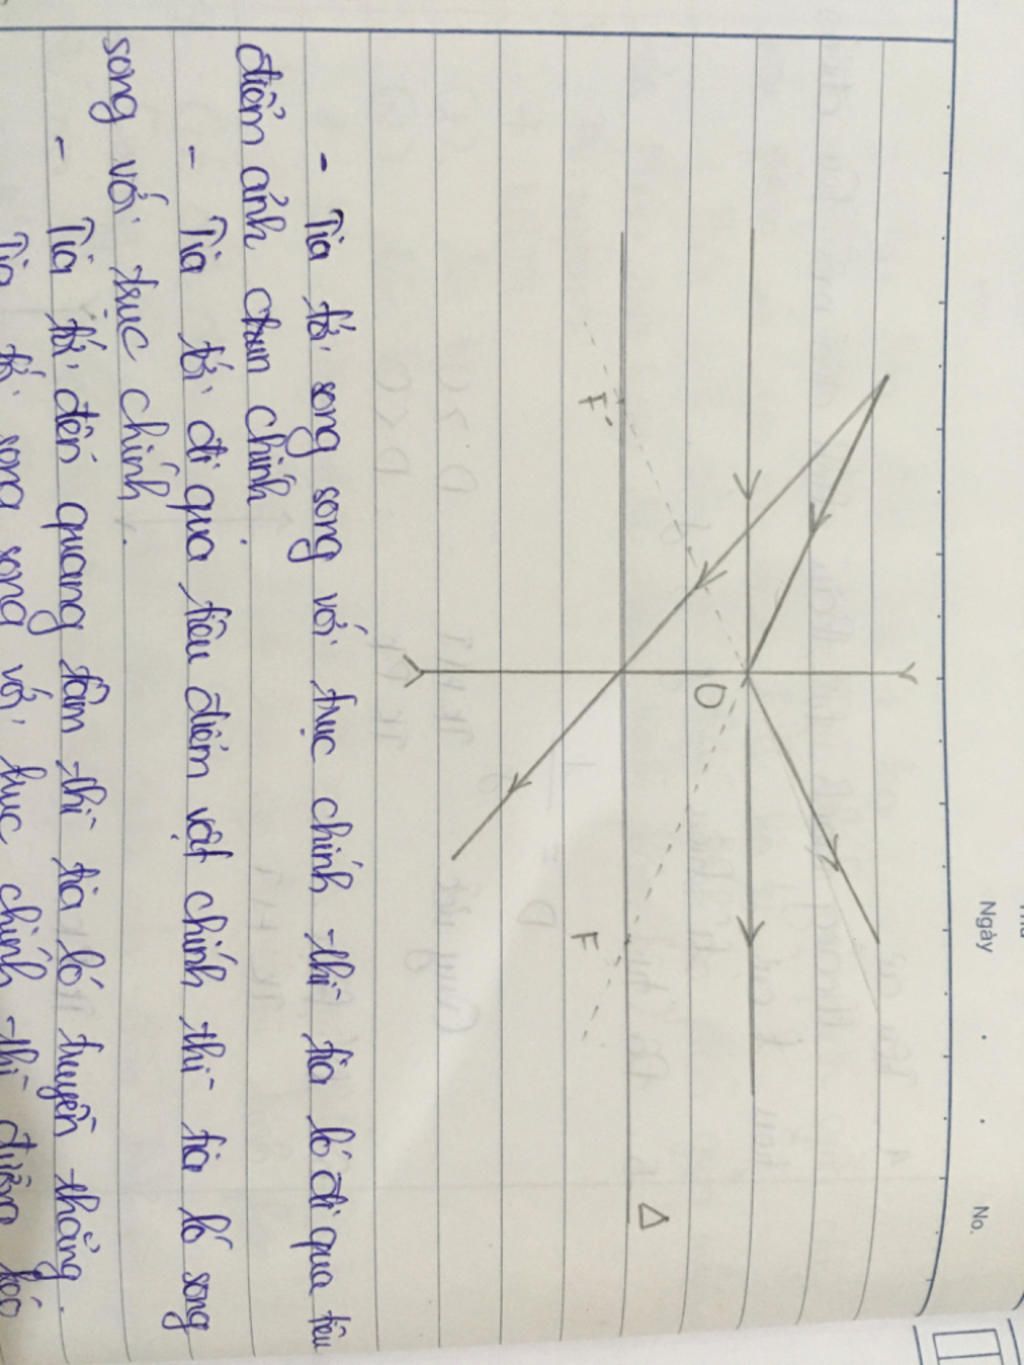 Ngày . . No.
Δ
F' O F
- Tia tới song song với trục chính thì tia ló đi qua tiêu
điểm ảnh chun chính.
- Tia tới đi qua tiêu điểm vật chính thì tia ló song
song với trục chính.
- Tia tới đến quang tâm thì tia ló truyền thẳng.
Tia tới song song với trục chính thì